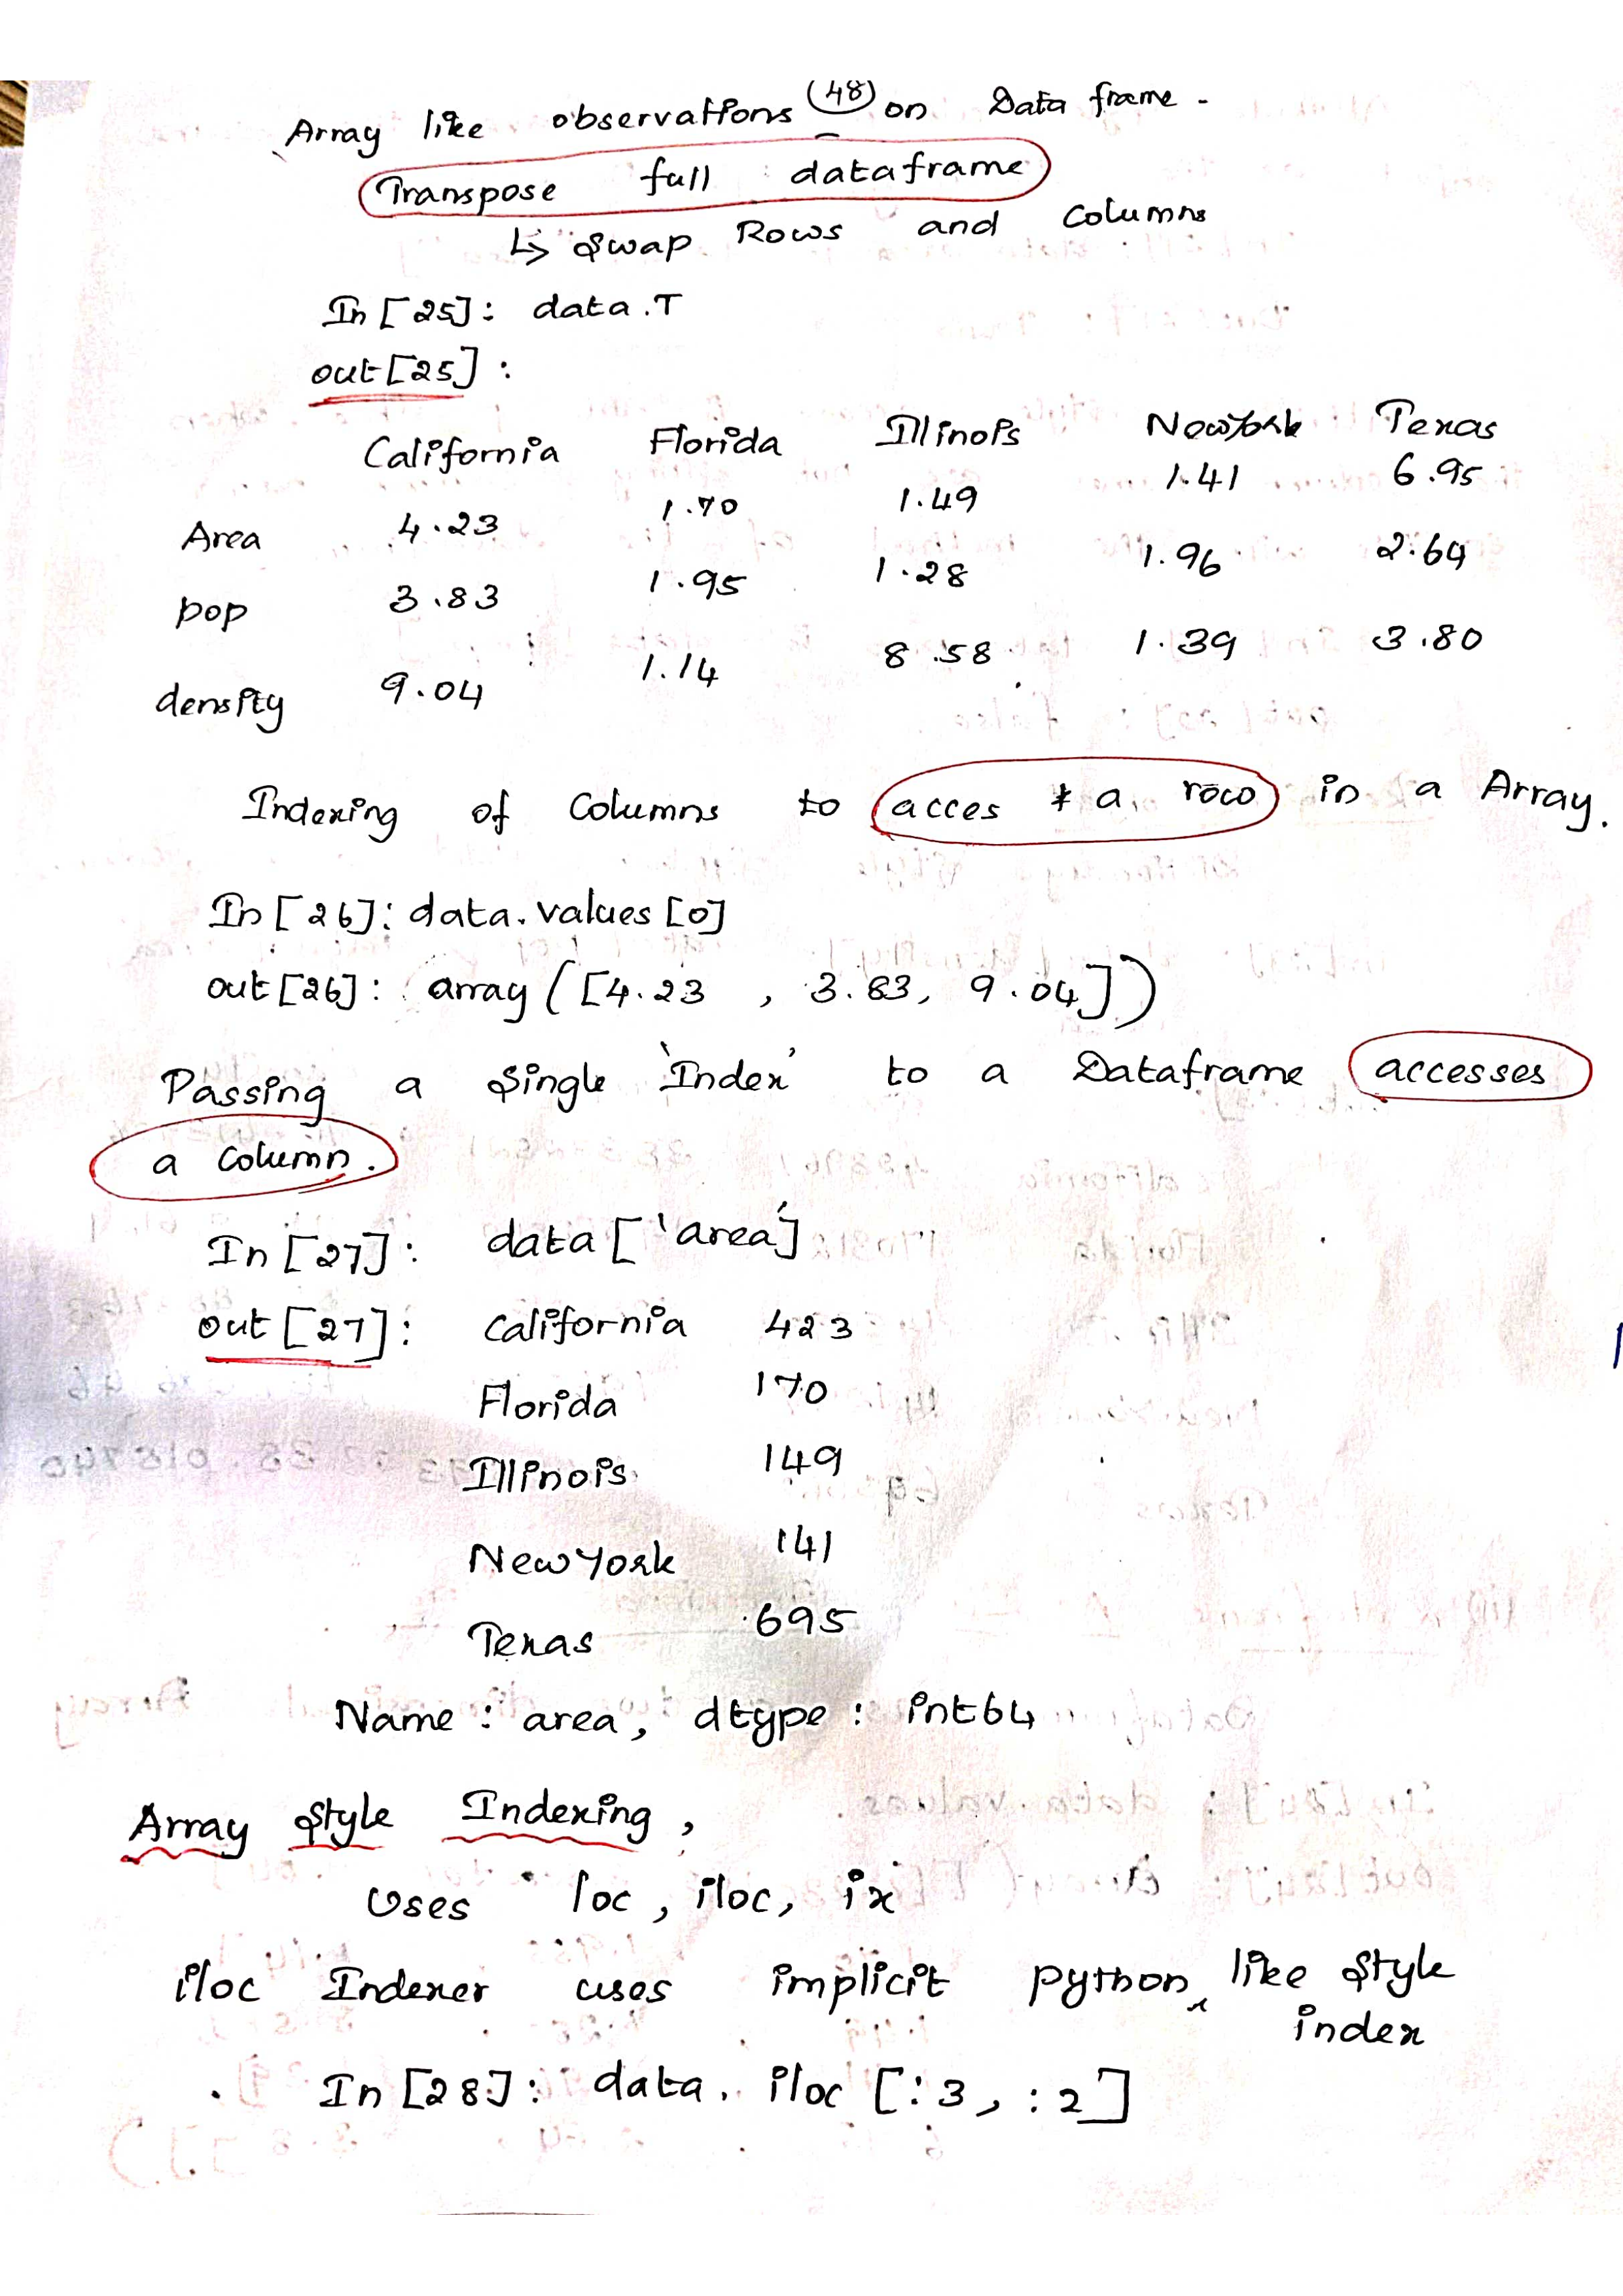 48
Array like observations on Data frame -
Transpose full dataframe
↳ Swap Rows and Columns
In [25]: data.T
out[25]:
California Florida Illinois NewYork Texas
Area 4.23 1.70 1.49 1.41 6.95
pop 3.83 1.95 1.28 1.96 2.64
density 9.04 1.14 8.58 1.39 3.80
Indexing of Columns to acces a row in a Array.
In [26]: data.values[0]
out[26]: array([4.23 , 3.83, 9.04])
Passing a Single 'Index' to a Dataframe accesses
a Column.
In [27]: data['area']
out[27]: California 423
Florida 170
Illinois 149
New York 141
Texas 695
Name: area, dtype: int64
Array Style Indexing,
Uses loc, iloc, ix
iloc Indexer uses implicit python like style
index
In [28]: data.iloc[:3, :2]